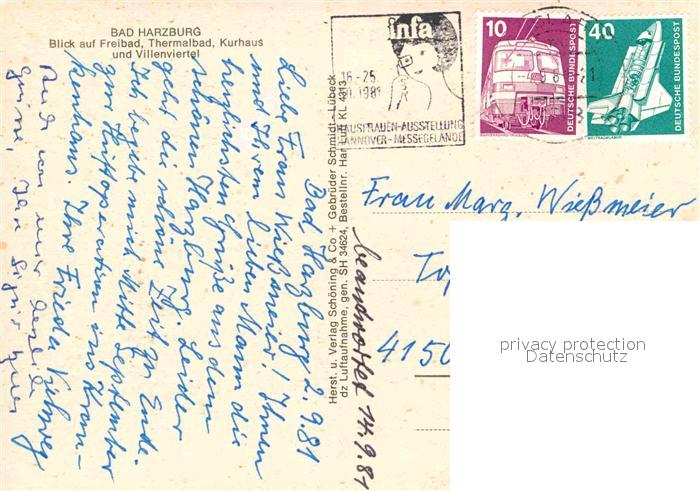 BAD HARZBURG
Blick auf Freibad, Thermalbad, Kurhaus
und Villenviertel
infa
16-25
10.1981
HAUSFRAUEN-AUSSTELLUNG
HANNOVER-MESSEGELÄNDE
10
DEUTSCHE BUNDESPOST
40
DEUTSCHE BUNDESPOST
Bad Harzburg 2.9.81
Liebe Frau Wießmeier! Ihnen
und Ihrem lieben Mann die
herzlichsten Grüße aus dem
schönen Harzburg. Leider
geht die schöne Zeit zu Ende.
Ich begebe mich Mitte September
zur Hüftoperation ins Kran-
kenhaus Ihre Frieda
Auch von mir herzliche
Grüße, Ihre
Herst. u. Verlag Schöning & Co + Gebrüder Schmidt - Lübeck
dz Luftaufnahme, gen. SH 34624, Bestellnr. Har KL 4313
beantwortet 14.9.81
Frau Marg. Wießmeier
4150
privacy protection
Datenschutz